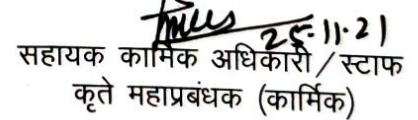 25.11.21
सहायक कार्मिक अधिकारी / स्टाफ
कृते महाप्रबंधक (कार्मिक)